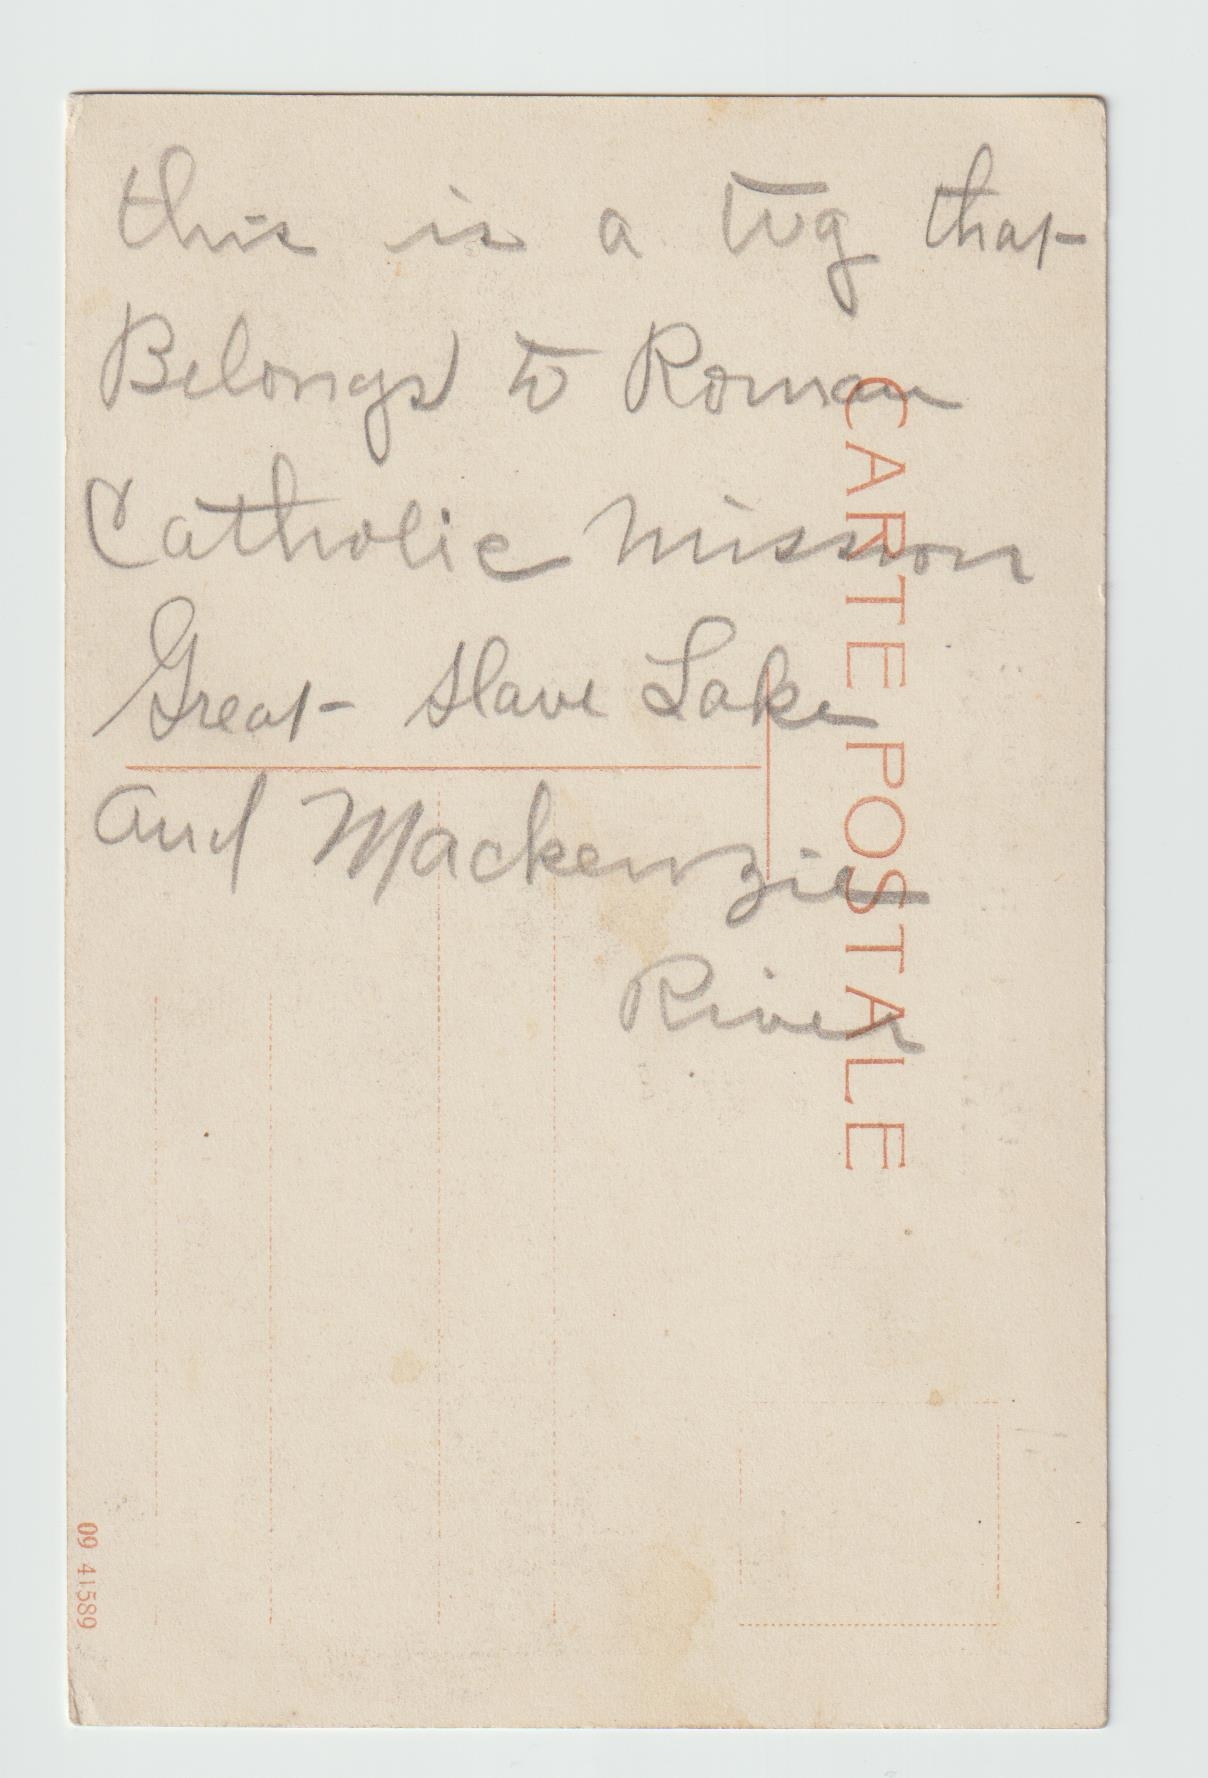 this is a tug that
Belongs to Roman
Catholic Mission
Great Slave Lake
and Mackenzie
River
CARTE POSTALE
09 41589